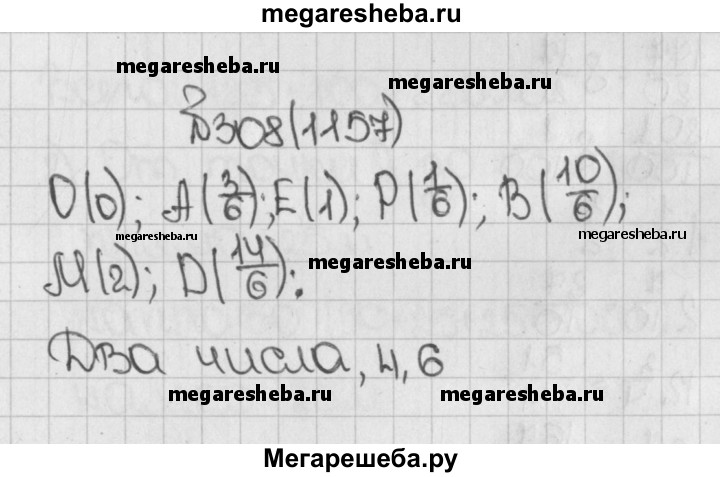 megaresheba.ru
megaresheba.ru
megaresheba.ru
№308(1157)
O(0); A(3/6); E(1); P(1/6); B(10/6);
megaresheba.ru
megaresheba.ru
M(2); D(14/6);
megaresheba.ru
Два числа, 4, 6
megaresheba.ru
megaresheba.ru
Мегарешеба.ру